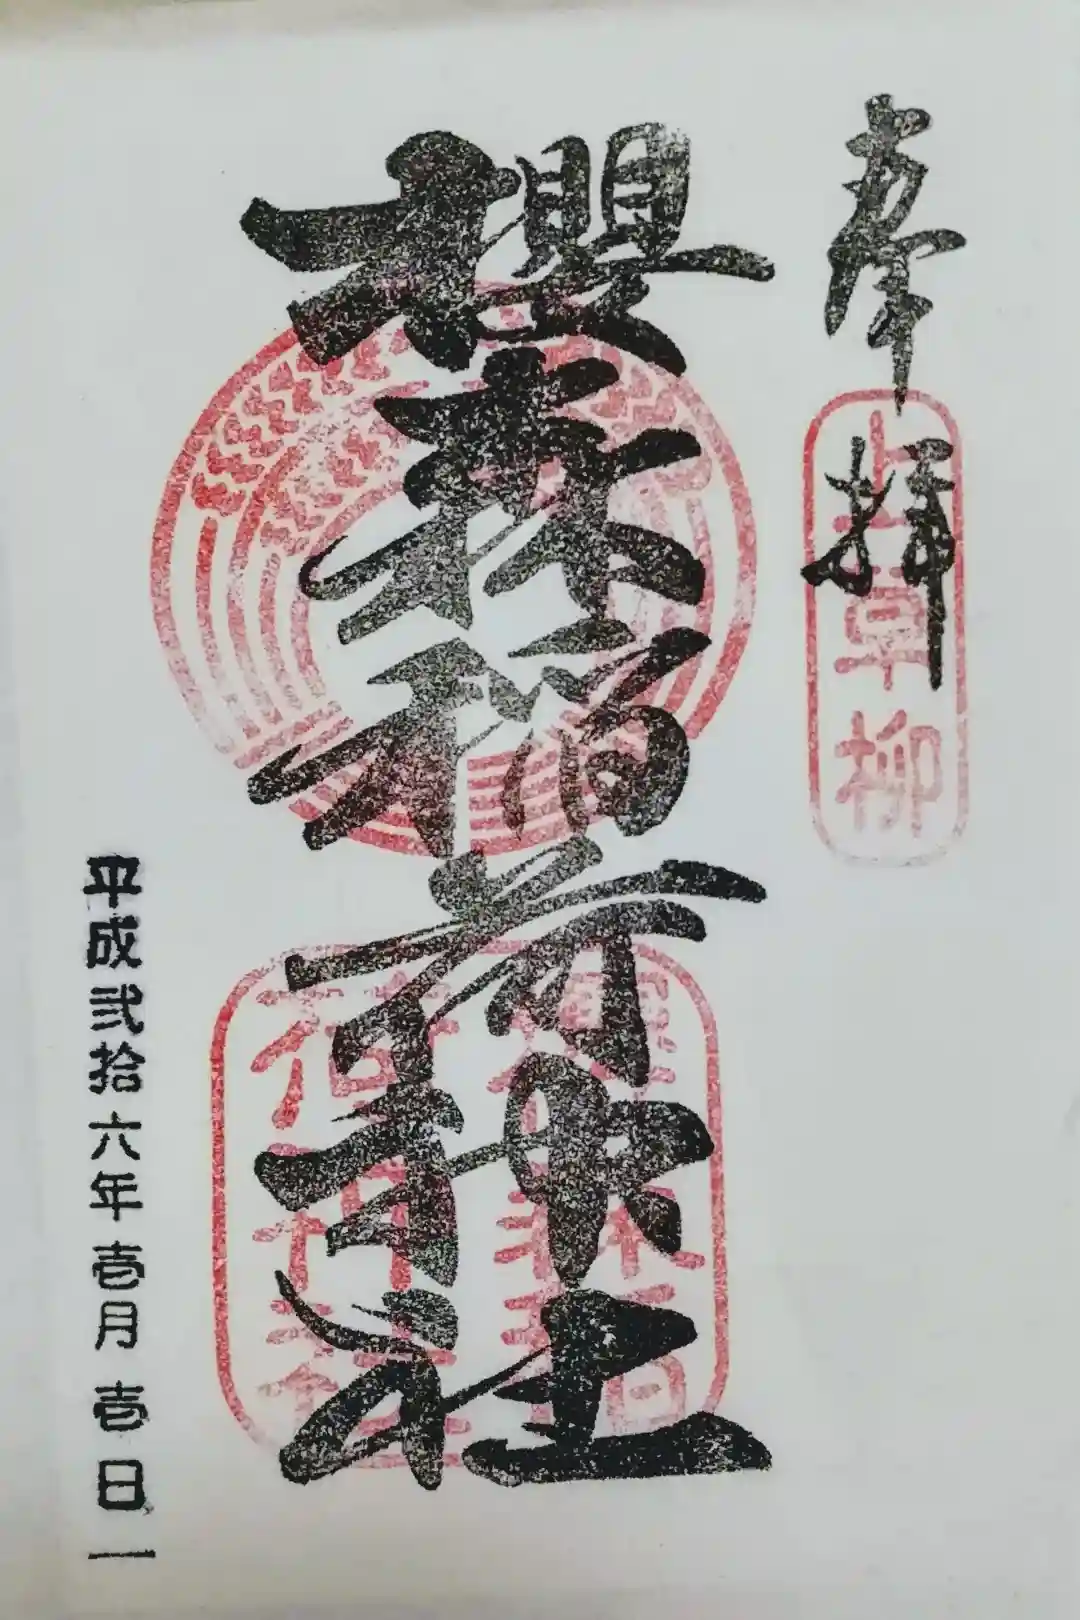 奉拝
上草柳
櫻森稲荷神社
平成弐拾六年壱月壱日